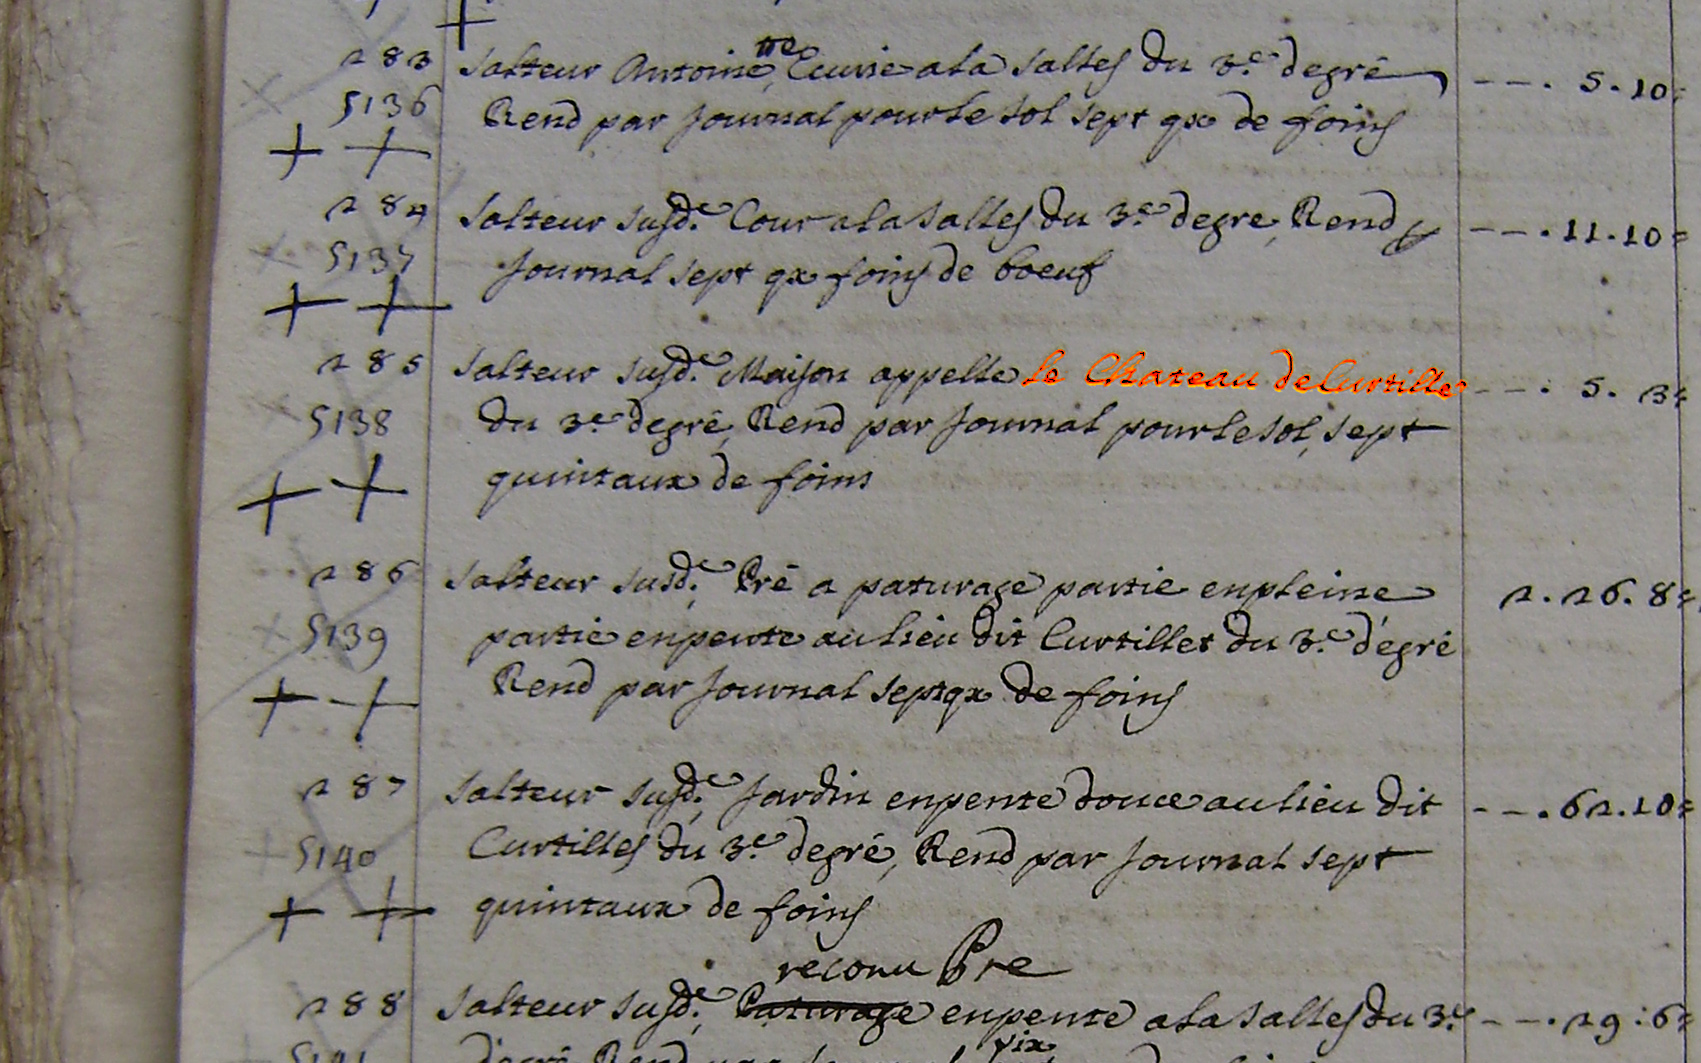 283 Salteur Antoine, Ecurie a la Salles du 3.e degré --. 5.10:
5136 Rend par Journal pour le sol sept qx de foins
284 Salteur susd.e Cour a la Salles du 3.e degre, Rend p --.11.10=
5137 Journal sept qx foins de boeuf
285 Salteur susd.e Maison appelle le Chateau de Curtilles --. 5. 3=
5138 du 3.e degré, Rend par Journal pour le sol, sept
quintaux de foins
286 Salteur susd.e, Pré a paturage partie en pleine 2.26.8=
5139 partie en pente au lieu dit Curtillet du 3.e degré
Rend par Journal sept qx de foins
287 Salteur susd.e, Jardin en pente douce au lieu dit --.62.10=
5140 Curtilles du 3.e degré, Rend par Journal sept
quintaux de foins
reconu Pre
288 Salteur susd.e, Paturage en pente a la Salles du 3.e --.29:6=
5141 degré Rend par